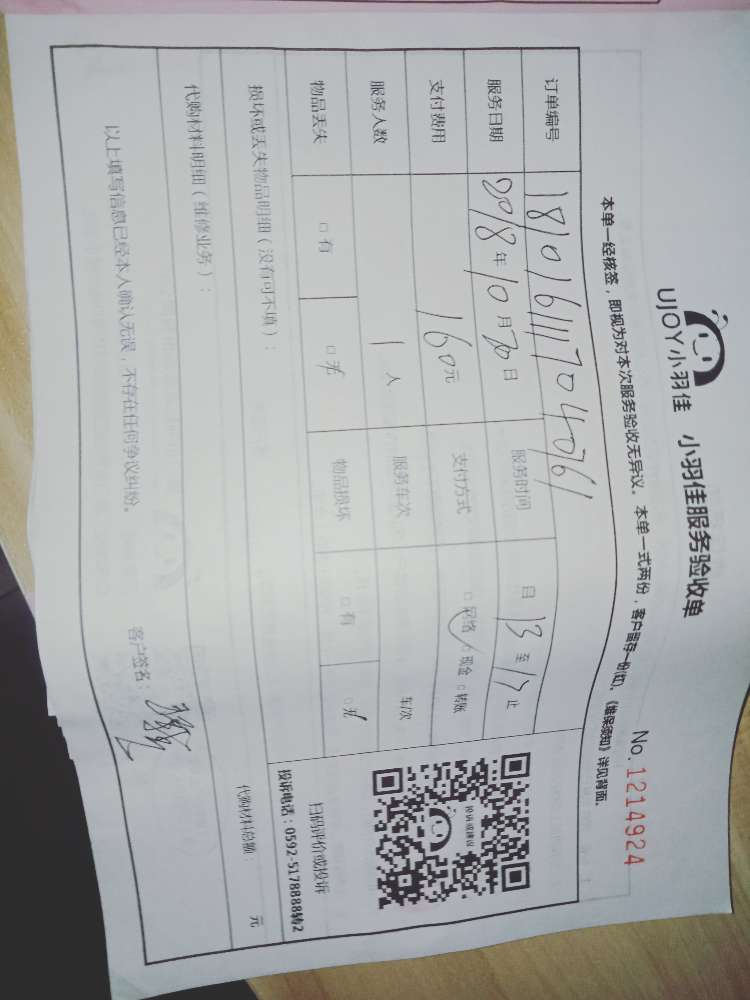 UJOY小羽佳 小羽佳服务验收单
No. 1214924
本单一经核签，即视为对本次服务验收无异议。本单一式两份，客户留存一份(红)。《维保须知》详见背面。
订单编号 181016111704761
服务日期 2018年10月20日 服务时间 自13至17止
支付费用 160元 支付方式 □网络 □现金 □转账
服务人数 1人 服务车次 车次
物品丢失 □有 □无 物品损坏 □有 □无
损坏或丢失物品明细（没有可不填）：
代购材料明细（维修业务）： 代购材料总额： 元
以上填写信息已经本人确认无误，不存在任何争议纠纷。
客户签名：
投诉或建议
扫码评价或投诉
投诉电话：0592-5178888转2